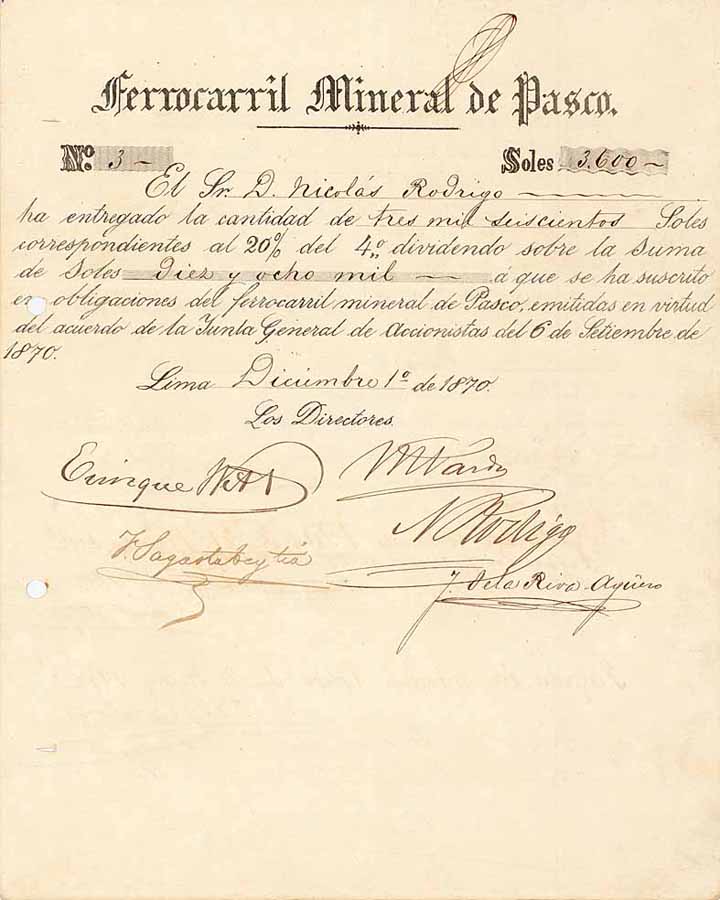 Ferrocarril Mineral de Pasco.
No. 3 – Soles 3.600 –
El Sr. D. Nicolás Rodrigo
ha entregado la cantidad de tres mil seiscientos Soles
correspondientes al 20% del 4.º dividendo sobre la suma
de Soles Diez y ocho mil — á que se ha suscrito
en obligaciones del ferrocarril mineral de Pasco, emitidas en virtud
del acuerdo de la Junta General de Accionistas del 6 de Setiembre de
1870.
Lima Diciembre 1º de 1870.
Los Directores.
Enrique
N Rodrigo
F. Sagastabeytia
J. de la Riva-Agüero